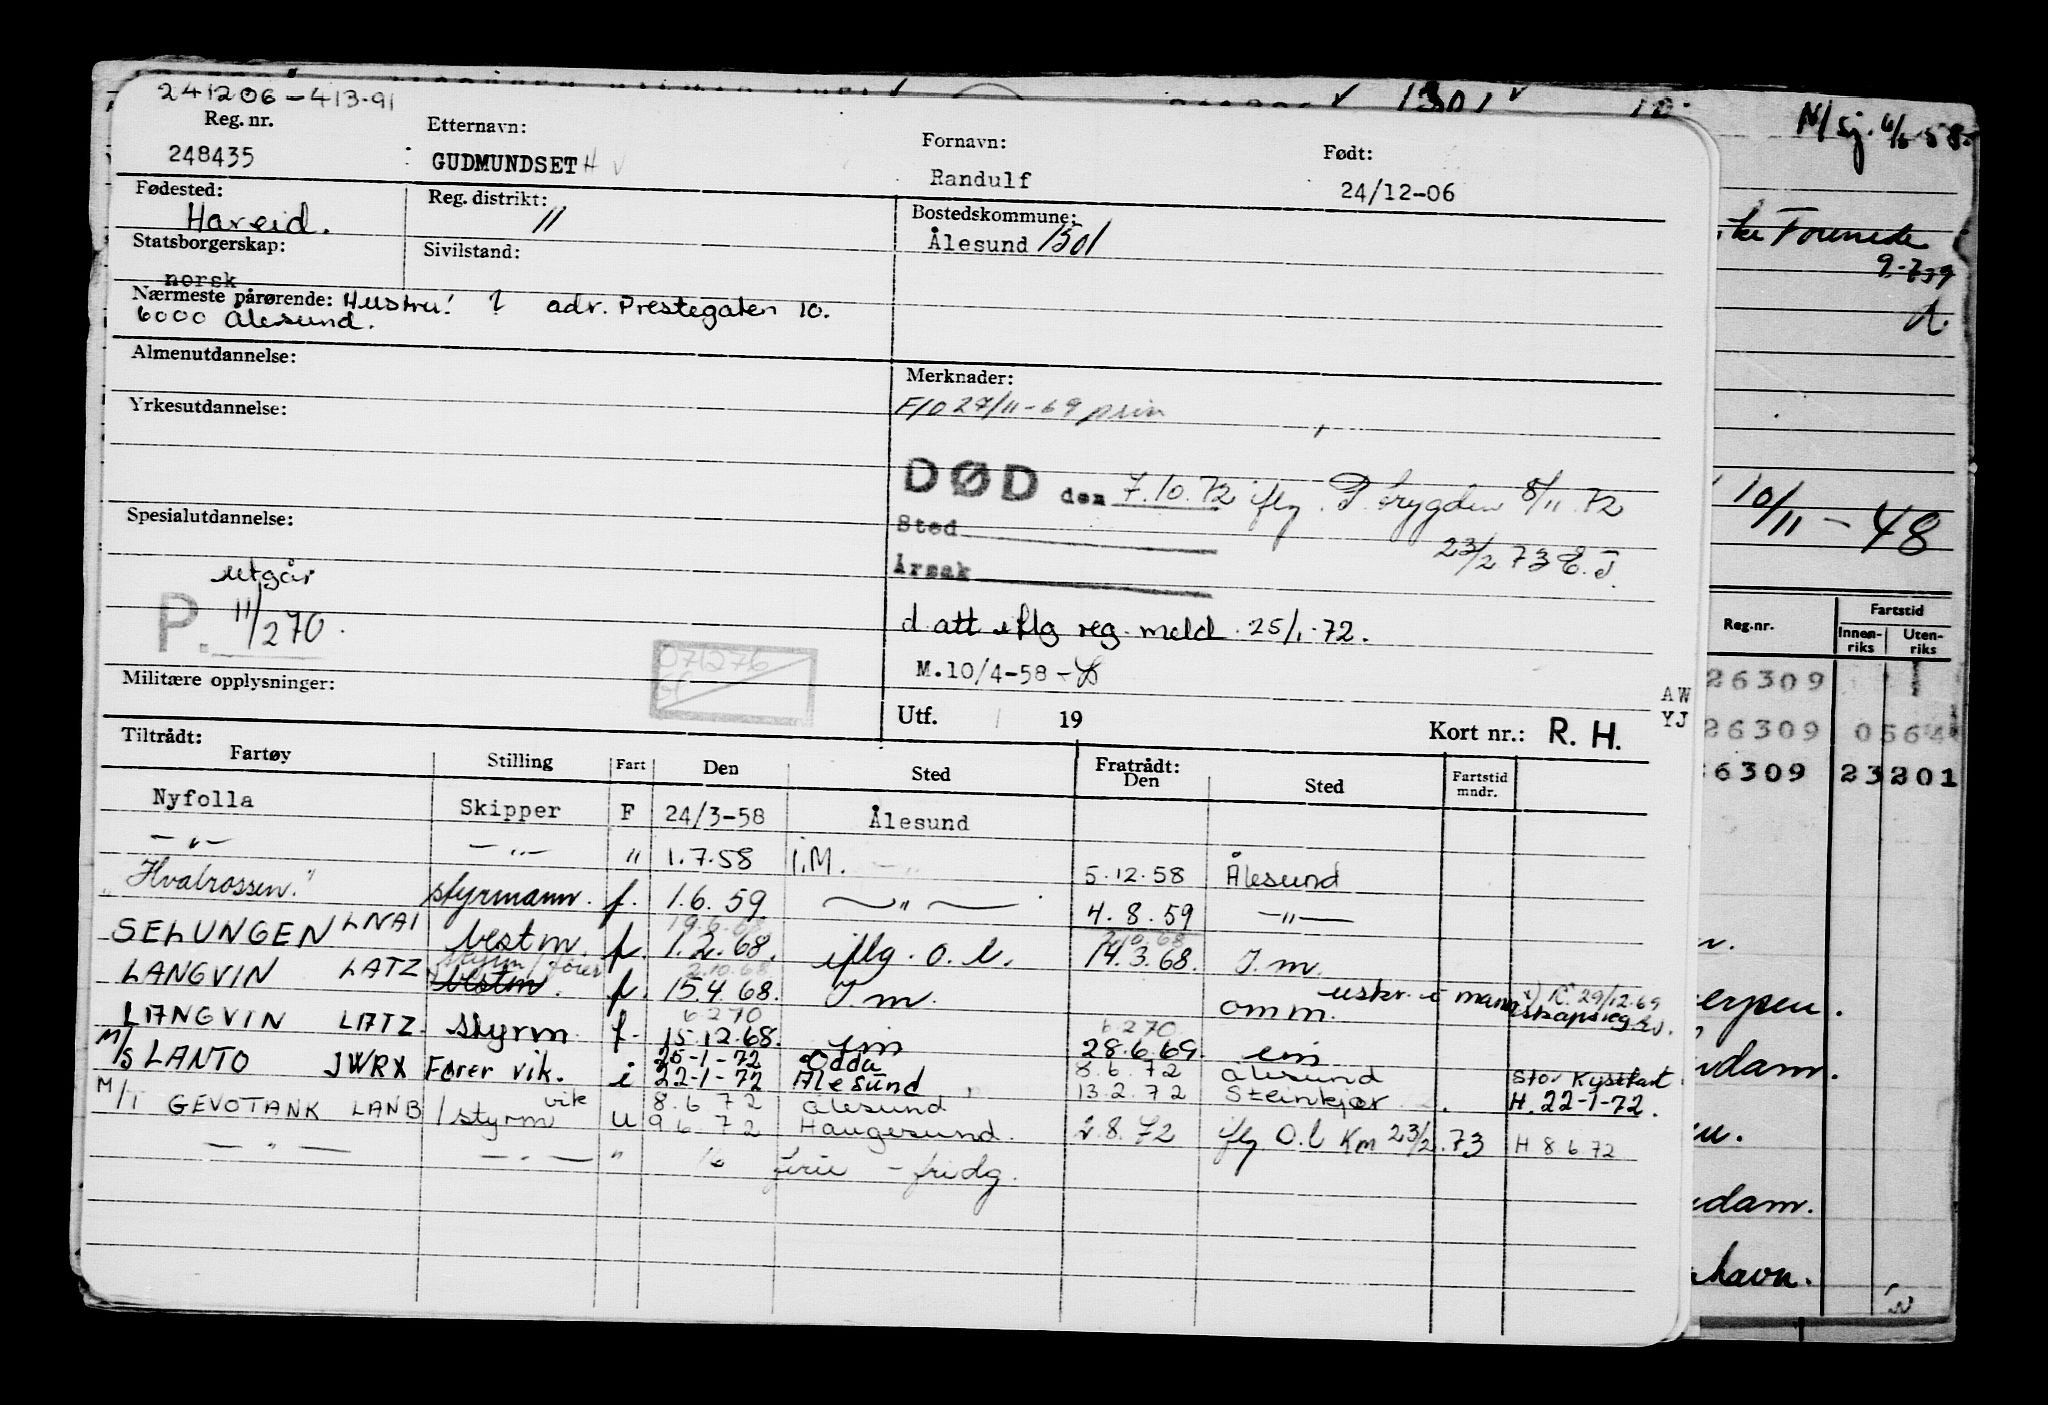 241206-413.91
Reg. nr. Etternavn: Fornavn: Født:
248435 GUDMUNDSETH Randulf 24/12-06
Fødested: Reg. distrikt: Bostedskommune:
Hareid. 11 Ålesund 1501
Statsborgerskap: Sivilstand:
norsk
Nærmeste pårørende: Hustru! ? adr. Prestegaten 10.
6000 Ålesund.
Almenutdannelse: Merknader:
Yrkesutdannelse: F/O 27/11-69
DØD den 7.10.72 iflg. P. trygden 8/11.72
Spesialutdannelse: Sted
23/2 73 E.J.
Årsak
utgår
P. 11/270.
d. att iflg reg. meld. 25/1.-72.
071276
M.10/4-58
Militære opplysninger:
Utf. 19 Kort nr.: R. H.
AW
YJ
Tiltrådt: Fratrådt:
Fartøy Stilling Fart Den Sted Den Sted Fartstid mndr.
Nyfolla Skipper F 24/3-58 Ålesund
—"— —"— " 1.7.58 i.M. 5.12.58 Ålesund
"Hvalrossen." styrmann. f. 1.6.59 —"— 4.8.59 —"—
SELUNGEN LNAI bestm f. 1.2.68. iflg. o.l. 14.3.68. I.m.
LANGVIN LATZ bestm. f. 15.4.68. I m. omm. uskr. i mannskapsreg.
29/12.69
6 2 70 6 2 70
LANGVIN LATZ. styrm f. 15.12.68. im 28.6.69. im
25-1-72 Odda 8.6.72 Ålesund Stor Kystfart
M/S LANTO JWRX Fører vik. i 22-1-72 Ålesund 13.2.72 Steinkjer H. 22-1-72.
8.6.72 Ålesund
M/T GEVOTANK LANB 1 styrm vik U 9.6.72 Haugesund. 2.8.72 iflg O.l Km 23/2.73 H 8.6.72
—"— —"— " 16 ferie - fridg.
1301
N/ sj.
9-7-39
10/11-48
Reg.nr. Fartstid
Innen-riks Uten-riks
26309
26309 0564
6309 23201